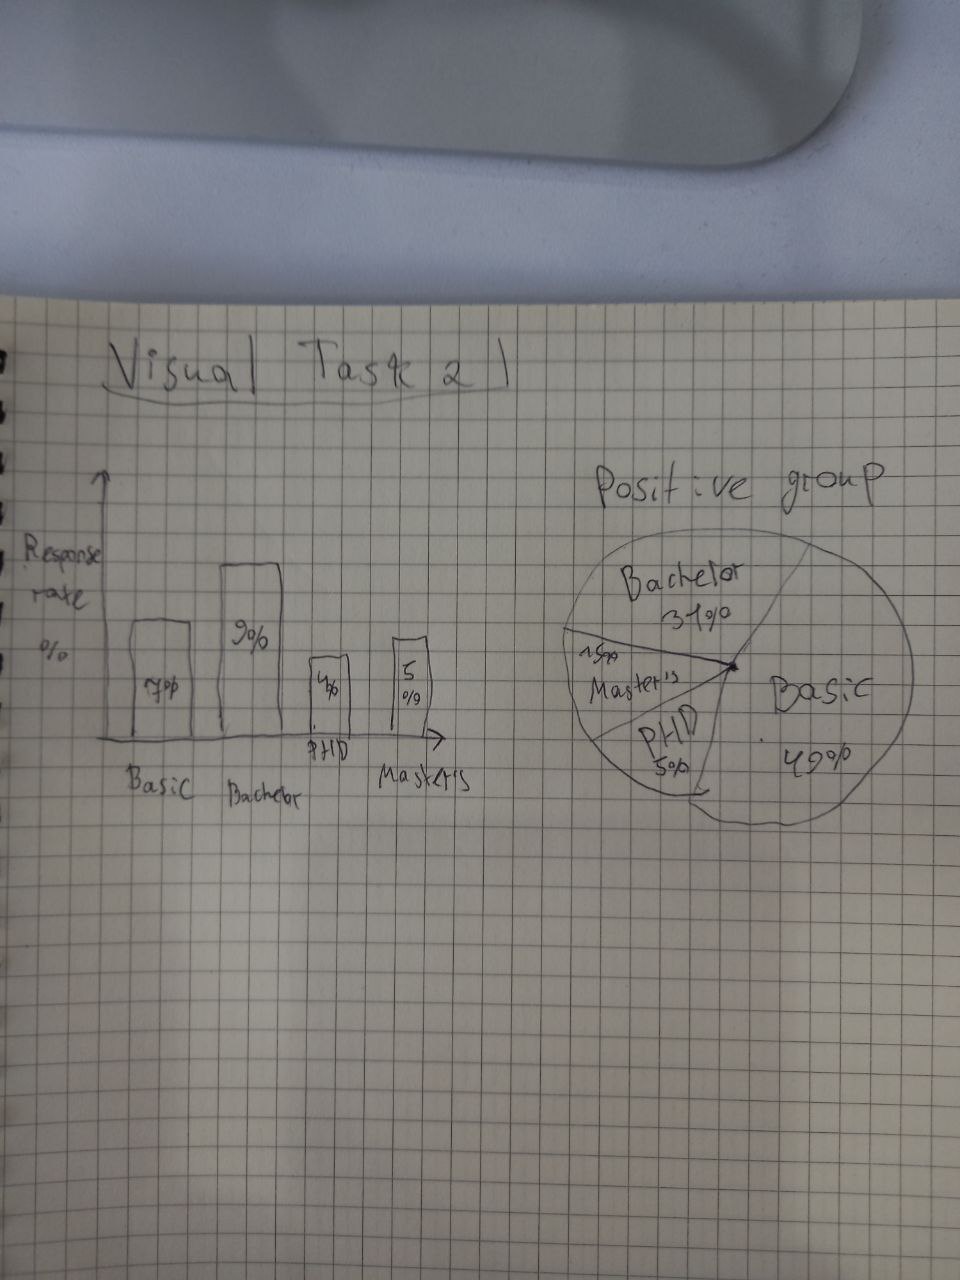 Visual Task 2
Response
rate
%
7%
9%
4%
5
%
Basic
Bachelor
PHD
Master's
Positive group
Bachelor
31%
15%
Master's
PHD
5%
Basic
49%